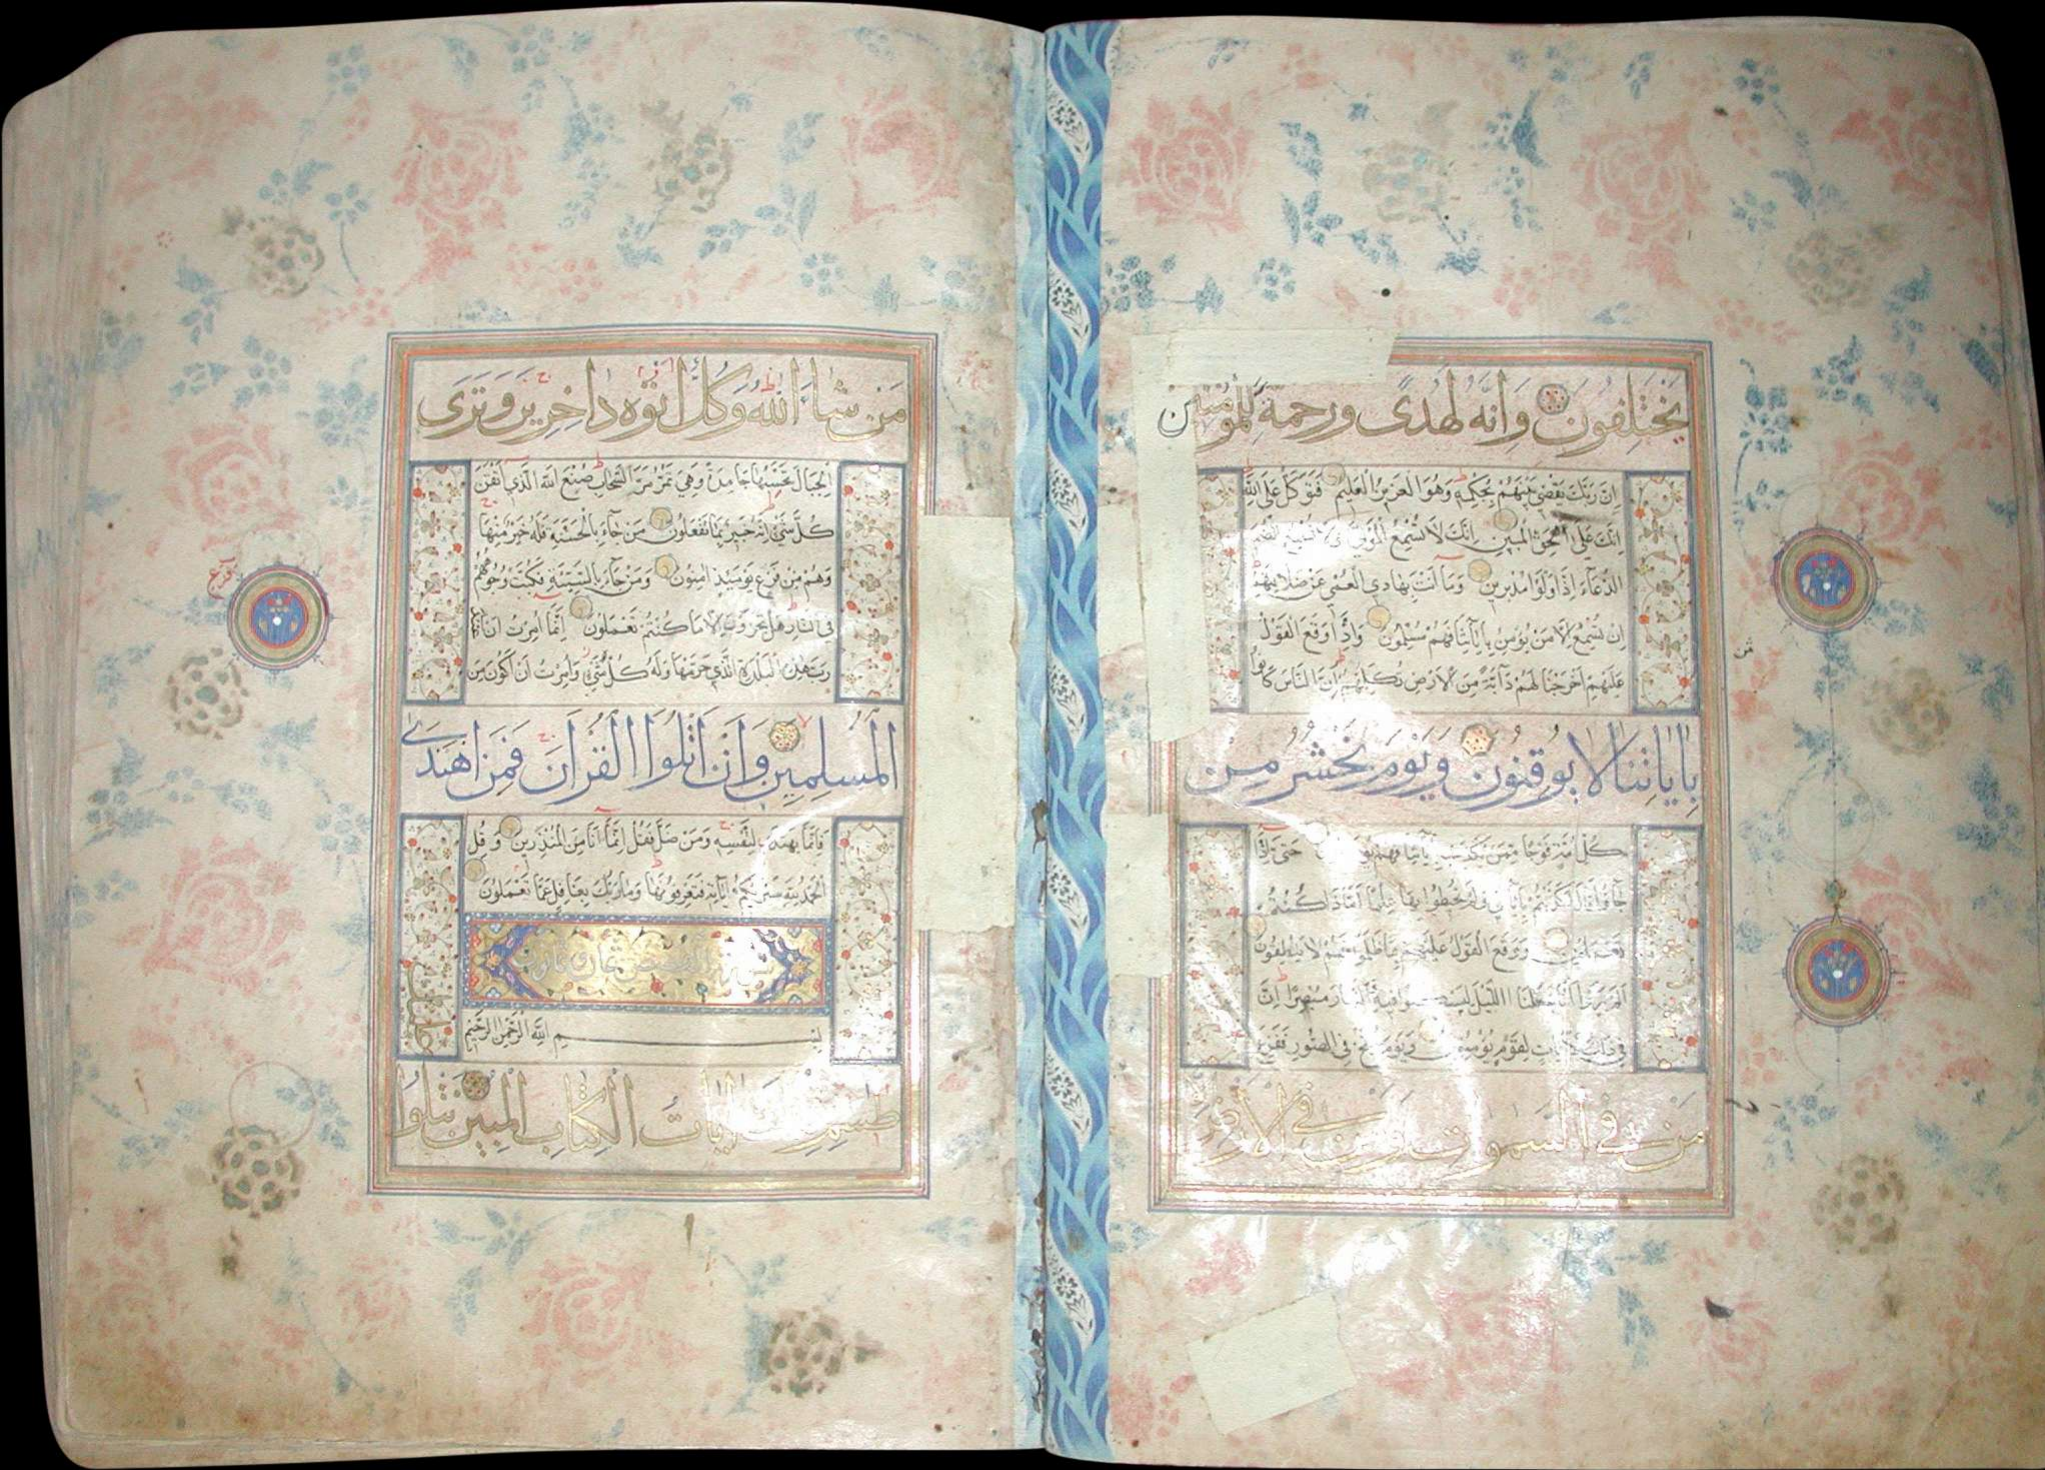 يختلفون وانه لهدى ورحمة للمؤمنين
ان ربك يقضي بينهم بحكمه وهو العزيز العليم فتوكل على الله
انك على الحق المبين انك لا تسمع الموتى ولا تسمع الصم
الدعاء اذا ولوا مدبرين وما انت بهادي العمي عن ضلالتهم
ان تسمع الا من يؤمن باياتنا فهم مسلمون واذا وقع القول
عليهم اخرجنا لهم دآبة من الارض تكلمهم ان الناس كانوا
باياتنا لا يوقنون ويوم نحشر من
كل امة فوجا ممن يكذب باياتنا فهم يوزعون حتى اذا
جاؤا قال اكذبتم باياتي ولم تحيطوا بها علما اماذا كنتم
تعملون ووقع القول عليهم بما ظلموا فهم لا ينطقون
الم يروا انا جعلنا الليل ليسكنوا فيه والنهار مبصرا ان
في ذلك لايات لقوم يؤمنون ويوم ينفخ في الصور ففزع
من في السموات ومن في الارض
من شاء الله وكل اتوه داخرين وترى
الجبال تحسبها جامدة وهي تمر مر السحاب صنع الله الذي اتقن
كل شيء انه خبير بما تفعلون من جاء بالحسنة فله خير منها
وهم من فزع يومئذ امنون ومن جاء بالسيئة فكبت وجوههم
في النار هل تجزون الا ما كنتم تعملون انما امرت ان اعبد
رب هذه البلدة الذي حرمها وله كل شيء وامرت ان اكون من
المسلمين وان اتلوا القران فمن اهتدى
فانما يهتدي لنفسه ومن ضل فقل انما انا من المنذرين وقل
الحمد لله سيريكم اياته فتعرفونها وما ربك بغافل عما تعملون
سورة القصص ثمان وثمانون
بسم الله الرحمن الرحيم
طسم تلك ايات الكتاب المبين نتلوا